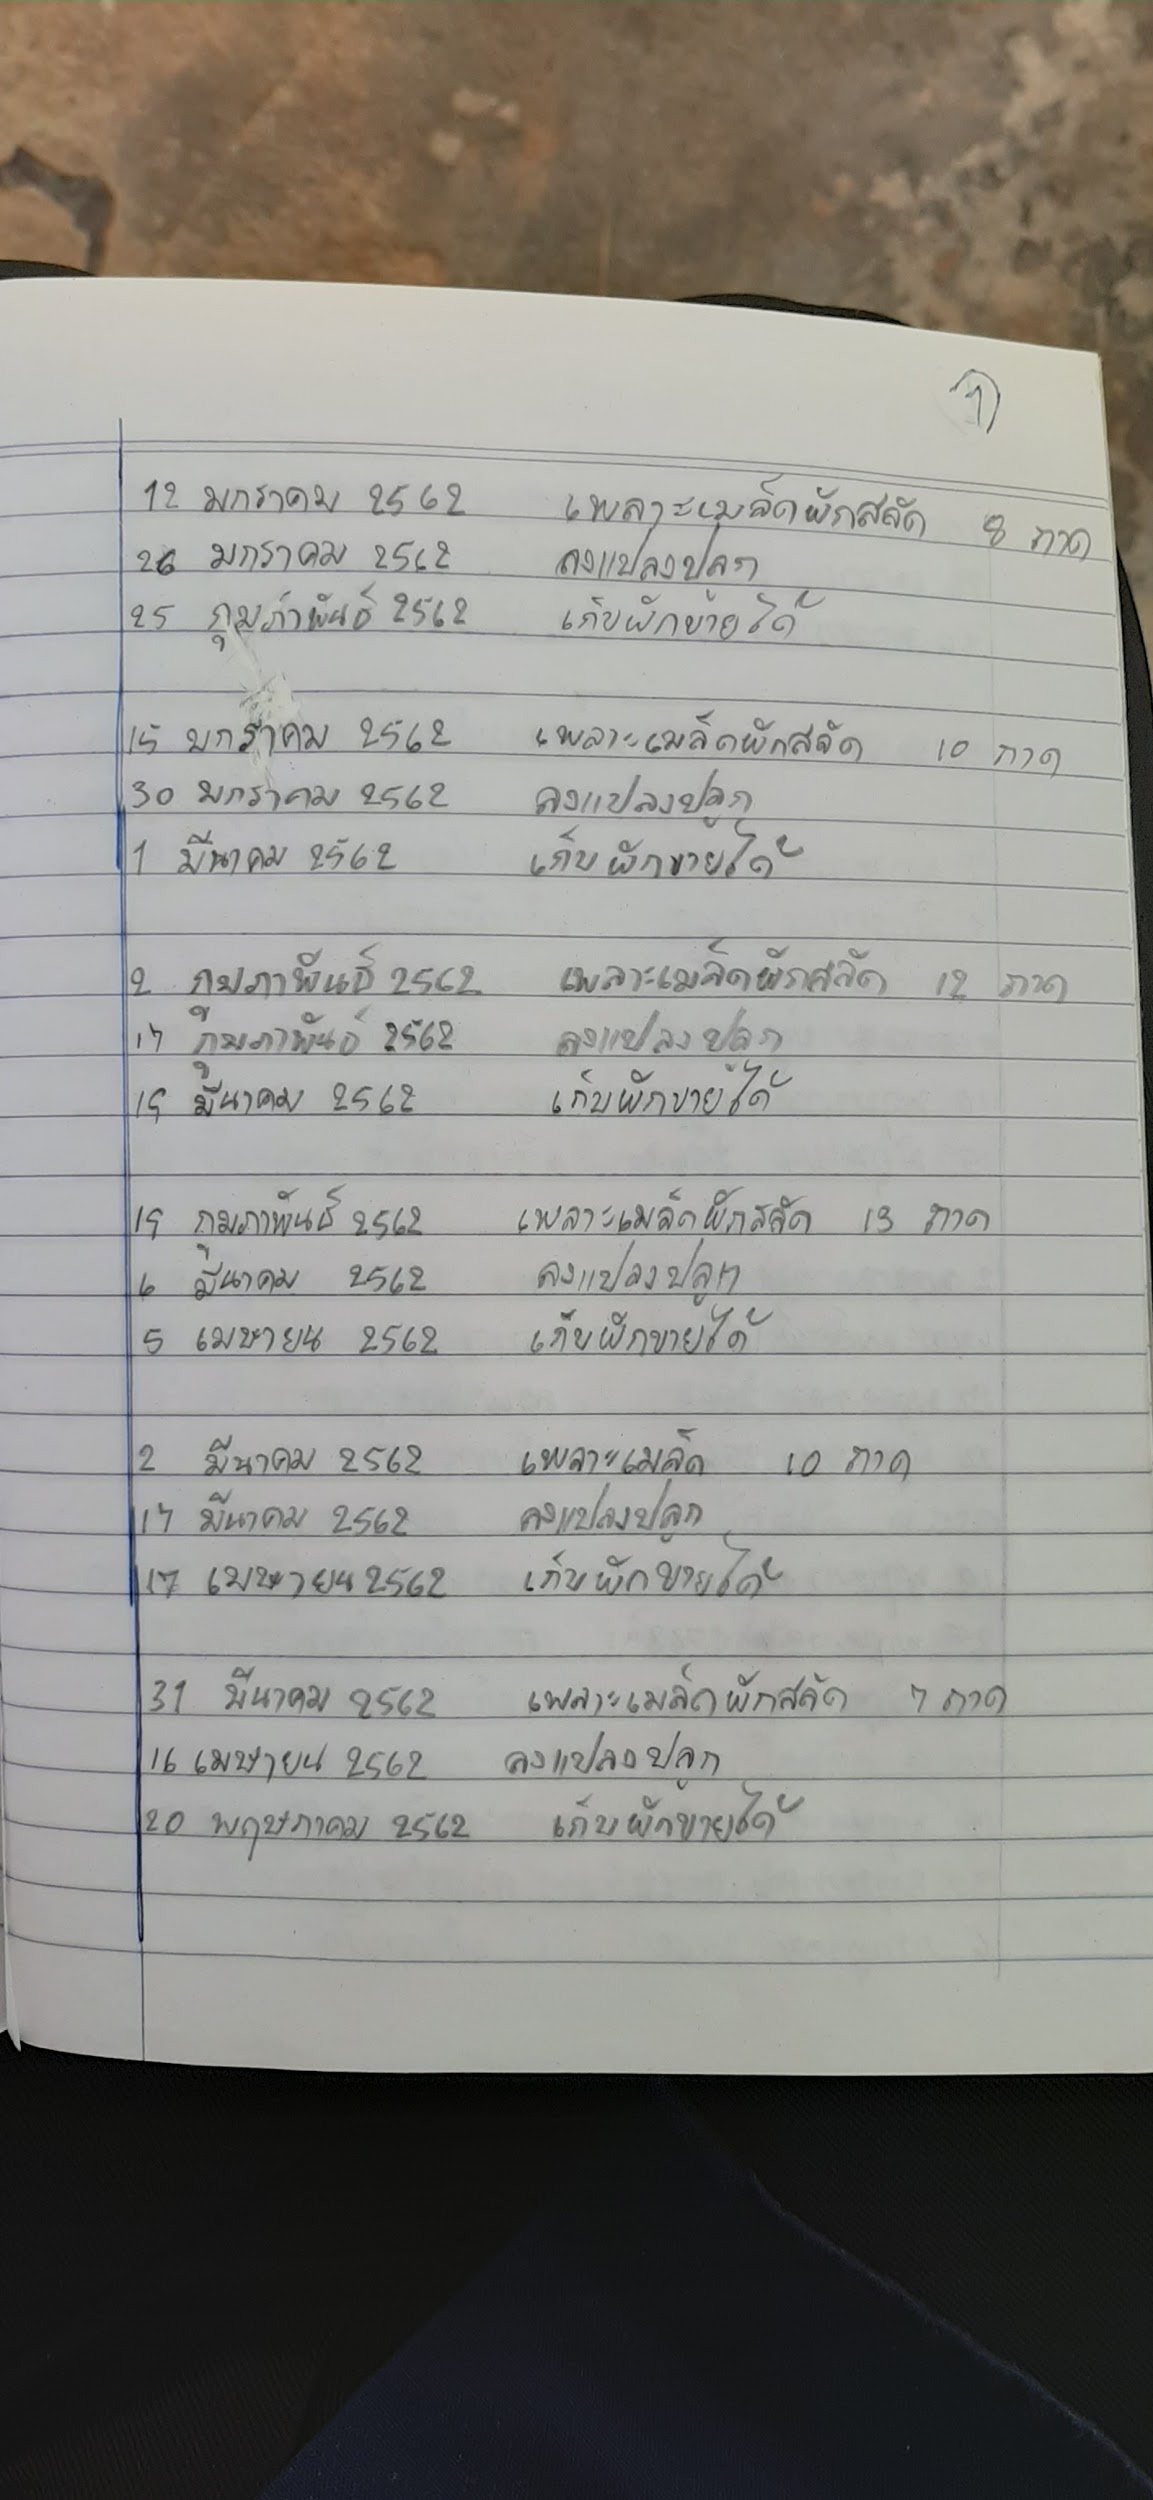 1
12 มกราคม 2562 เพลาะเมล็ดผักสลัด 8 ถาด
26 มกราคม 2562 ลงแปลงปลูก
25 กุมภาพันธ์ 2562 เก็บผักขายได้
15 มกราคม 2562 เพลาะเมล็ดผักสลัด 10 ถาด
30 มกราคม 2562 ลงแปลงปลูก
1 มีนาคม 2562 เก็บผักขายได้
2 กุมภาพันธ์ 2562 เพลาะเมล็ดผักสลัด 12 ถาด
17 กุมภาพันธ์ 2562 ลงแปลงปลูก
19 มีนาคม 2562 เก็บผักขายได้
19 กุมภาพันธ์ 2562 เพลาะเมล็ดผักสลัด 13 ถาด
6 มีนาคม 2562 ลงแปลงปลูก
5 เมษายน 2562 เก็บผักขายได้
2 มีนาคม 2562 เพลาะเมล็ด 10 ถาด
17 มีนาคม 2562 ลงแปลงปลูก
17 เมษายน 2562 เก็บผักขายได้
31 มีนาคม 2562 เพลาะเมล็ดผักสลัด 7 ถาด
16 เมษายน 2562 ลงแปลงปลูก
20 พฤษภาคม 2562 เก็บผักขายได้